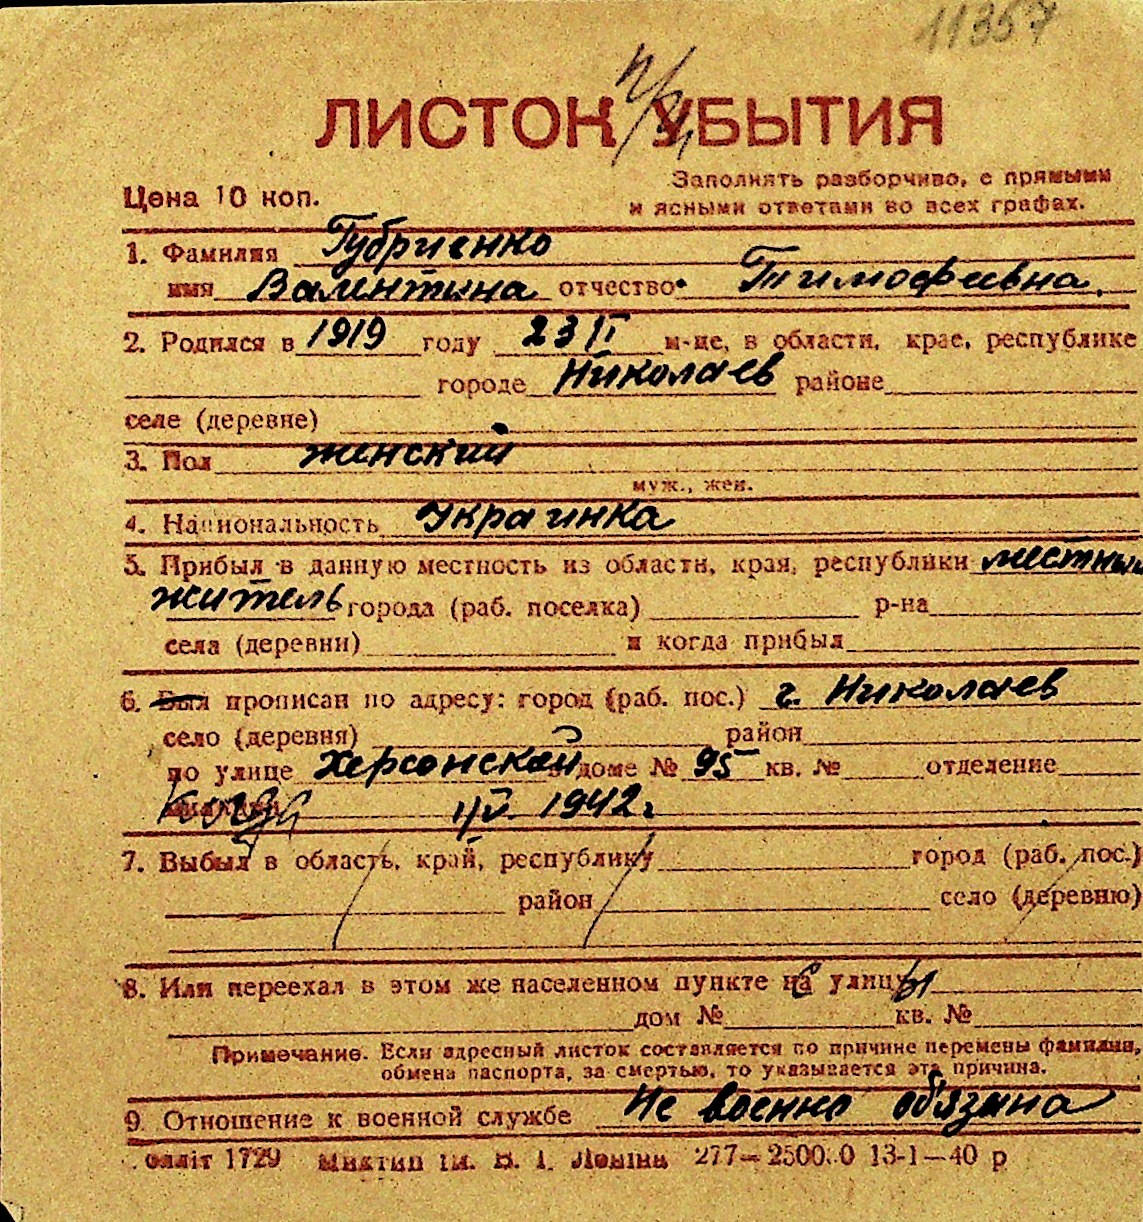 11357
п/п
ЛИСТОК УБЫТИЯ
Цена 10 коп.
Заполнять разборчиво, с прямыми
и ясными ответами во всех графах.
1. Фамилия Губриенко
имя Валентина отчество Тимофеевна.
2. Родился в 1919 году 23 II м-це, в области, крае, республике
городе Николаев районе
селе (деревне)
3. Пол женский
муж., жен.
4. Национальность Украинка
5. Прибыл в данную местность из области, края, республики местный
житель города (раб. поселка) р-на
села (деревни) и когда прибыл
6. Был прописан по адресу: город (раб. пос.) г. Николаев
село (деревня) район
по улице Херсонской в доме № 95 кв. № отделение
Когда 1942 г
7. Выбыл в область, край, республику город (раб. пос.)
район село (деревню)
8. Или переехал в этом же населенном пункте с улицы
дом № кв. №
Примечание. Если адресный листок составляется по причине перемены фамилии,
обмена паспорта, за смертью, то указывается эта причина.
9. Отношение к военной службе Не военно обязана
1729 ім. В. І. Леніна 277— 13-1—40 р